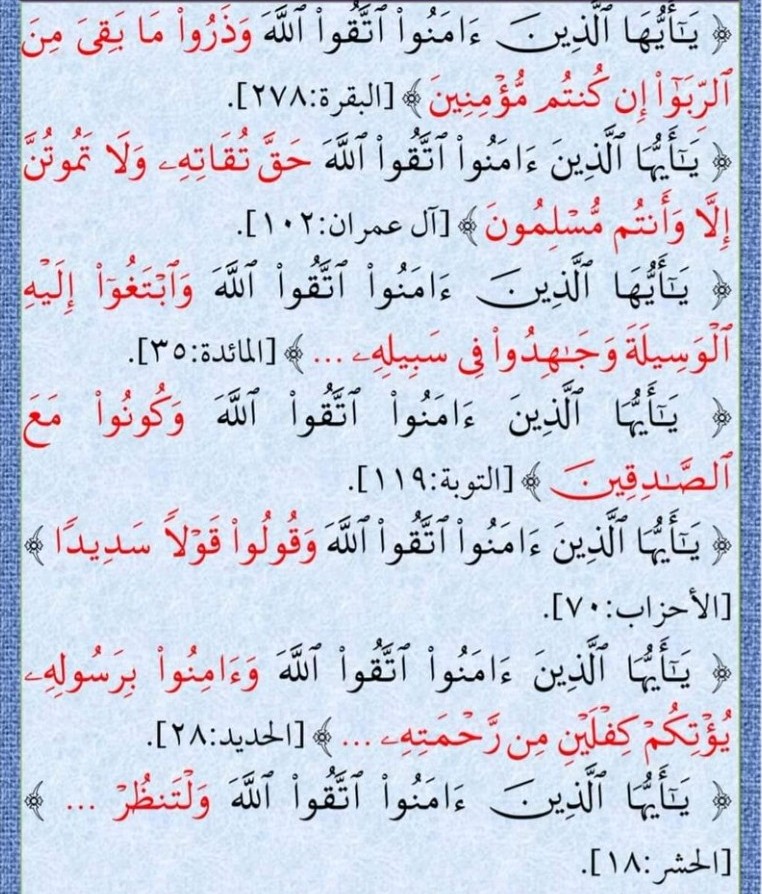 ﴿ يَـٰٓأَيُّهَا ٱلَّذِينَ ءَامَنُوا۟ ٱتَّقُوا۟ ٱللَّهَ وَذَرُوا۟ مَا بَقِىَ مِنَ
ٱلرِّبَوٰٓا۟ إِن كُنتُم مُّؤْمِنِينَ ﴾ [البقرة:٢٧٨].
﴿ يَـٰٓأَيُّهَا ٱلَّذِينَ ءَامَنُوا۟ ٱتَّقُوا۟ ٱللَّهَ حَقَّ تُقَاتِهِۦ وَلَا تَمُوتُنَّ
إِلَّا وَأَنتُم مُّسْلِمُونَ ﴾ [آل عمران:١٠٢].
﴿ يَـٰٓأَيُّهَا ٱلَّذِينَ ءَامَنُوا۟ ٱتَّقُوا۟ ٱللَّهَ وَٱبْتَغُوٓا۟ إِلَيْهِ
ٱلْوَسِيلَةَ وَجَـٰهِدُوا۟ فِى سَبِيلِهِۦ ... ﴾ [المائدة:٣٥].
﴿ يَـٰٓأَيُّهَا ٱلَّذِينَ ءَامَنُوا۟ ٱتَّقُوا۟ ٱللَّهَ وَكُونُوا۟ مَعَ
ٱلصَّـٰدِقِينَ ﴾ [التوبة:١١٩].
﴿ يَـٰٓأَيُّهَا ٱلَّذِينَ ءَامَنُوا۟ ٱتَّقُوا۟ ٱللَّهَ وَقُولُوا۟ قَوْلًا سَدِيدًا ﴾
[الأحزاب:٧٠].
﴿ يَـٰٓأَيُّهَا ٱلَّذِينَ ءَامَنُوا۟ ٱتَّقُوا۟ ٱللَّهَ وَءَامِنُوا۟ بِرَسُولِهِۦ
يُؤْتِكُمْ كِفْلَيْنِ مِن رَّحْمَتِهِۦ ... ﴾ [الحديد:٢٨].
﴿ يَـٰٓأَيُّهَا ٱلَّذِينَ ءَامَنُوا۟ ٱتَّقُوا۟ ٱللَّهَ وَلْتَنظُرْ ... ﴾
[الحشر:١٨].